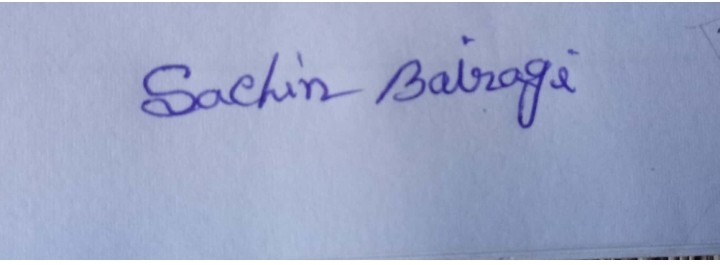 Sachin Bairagi